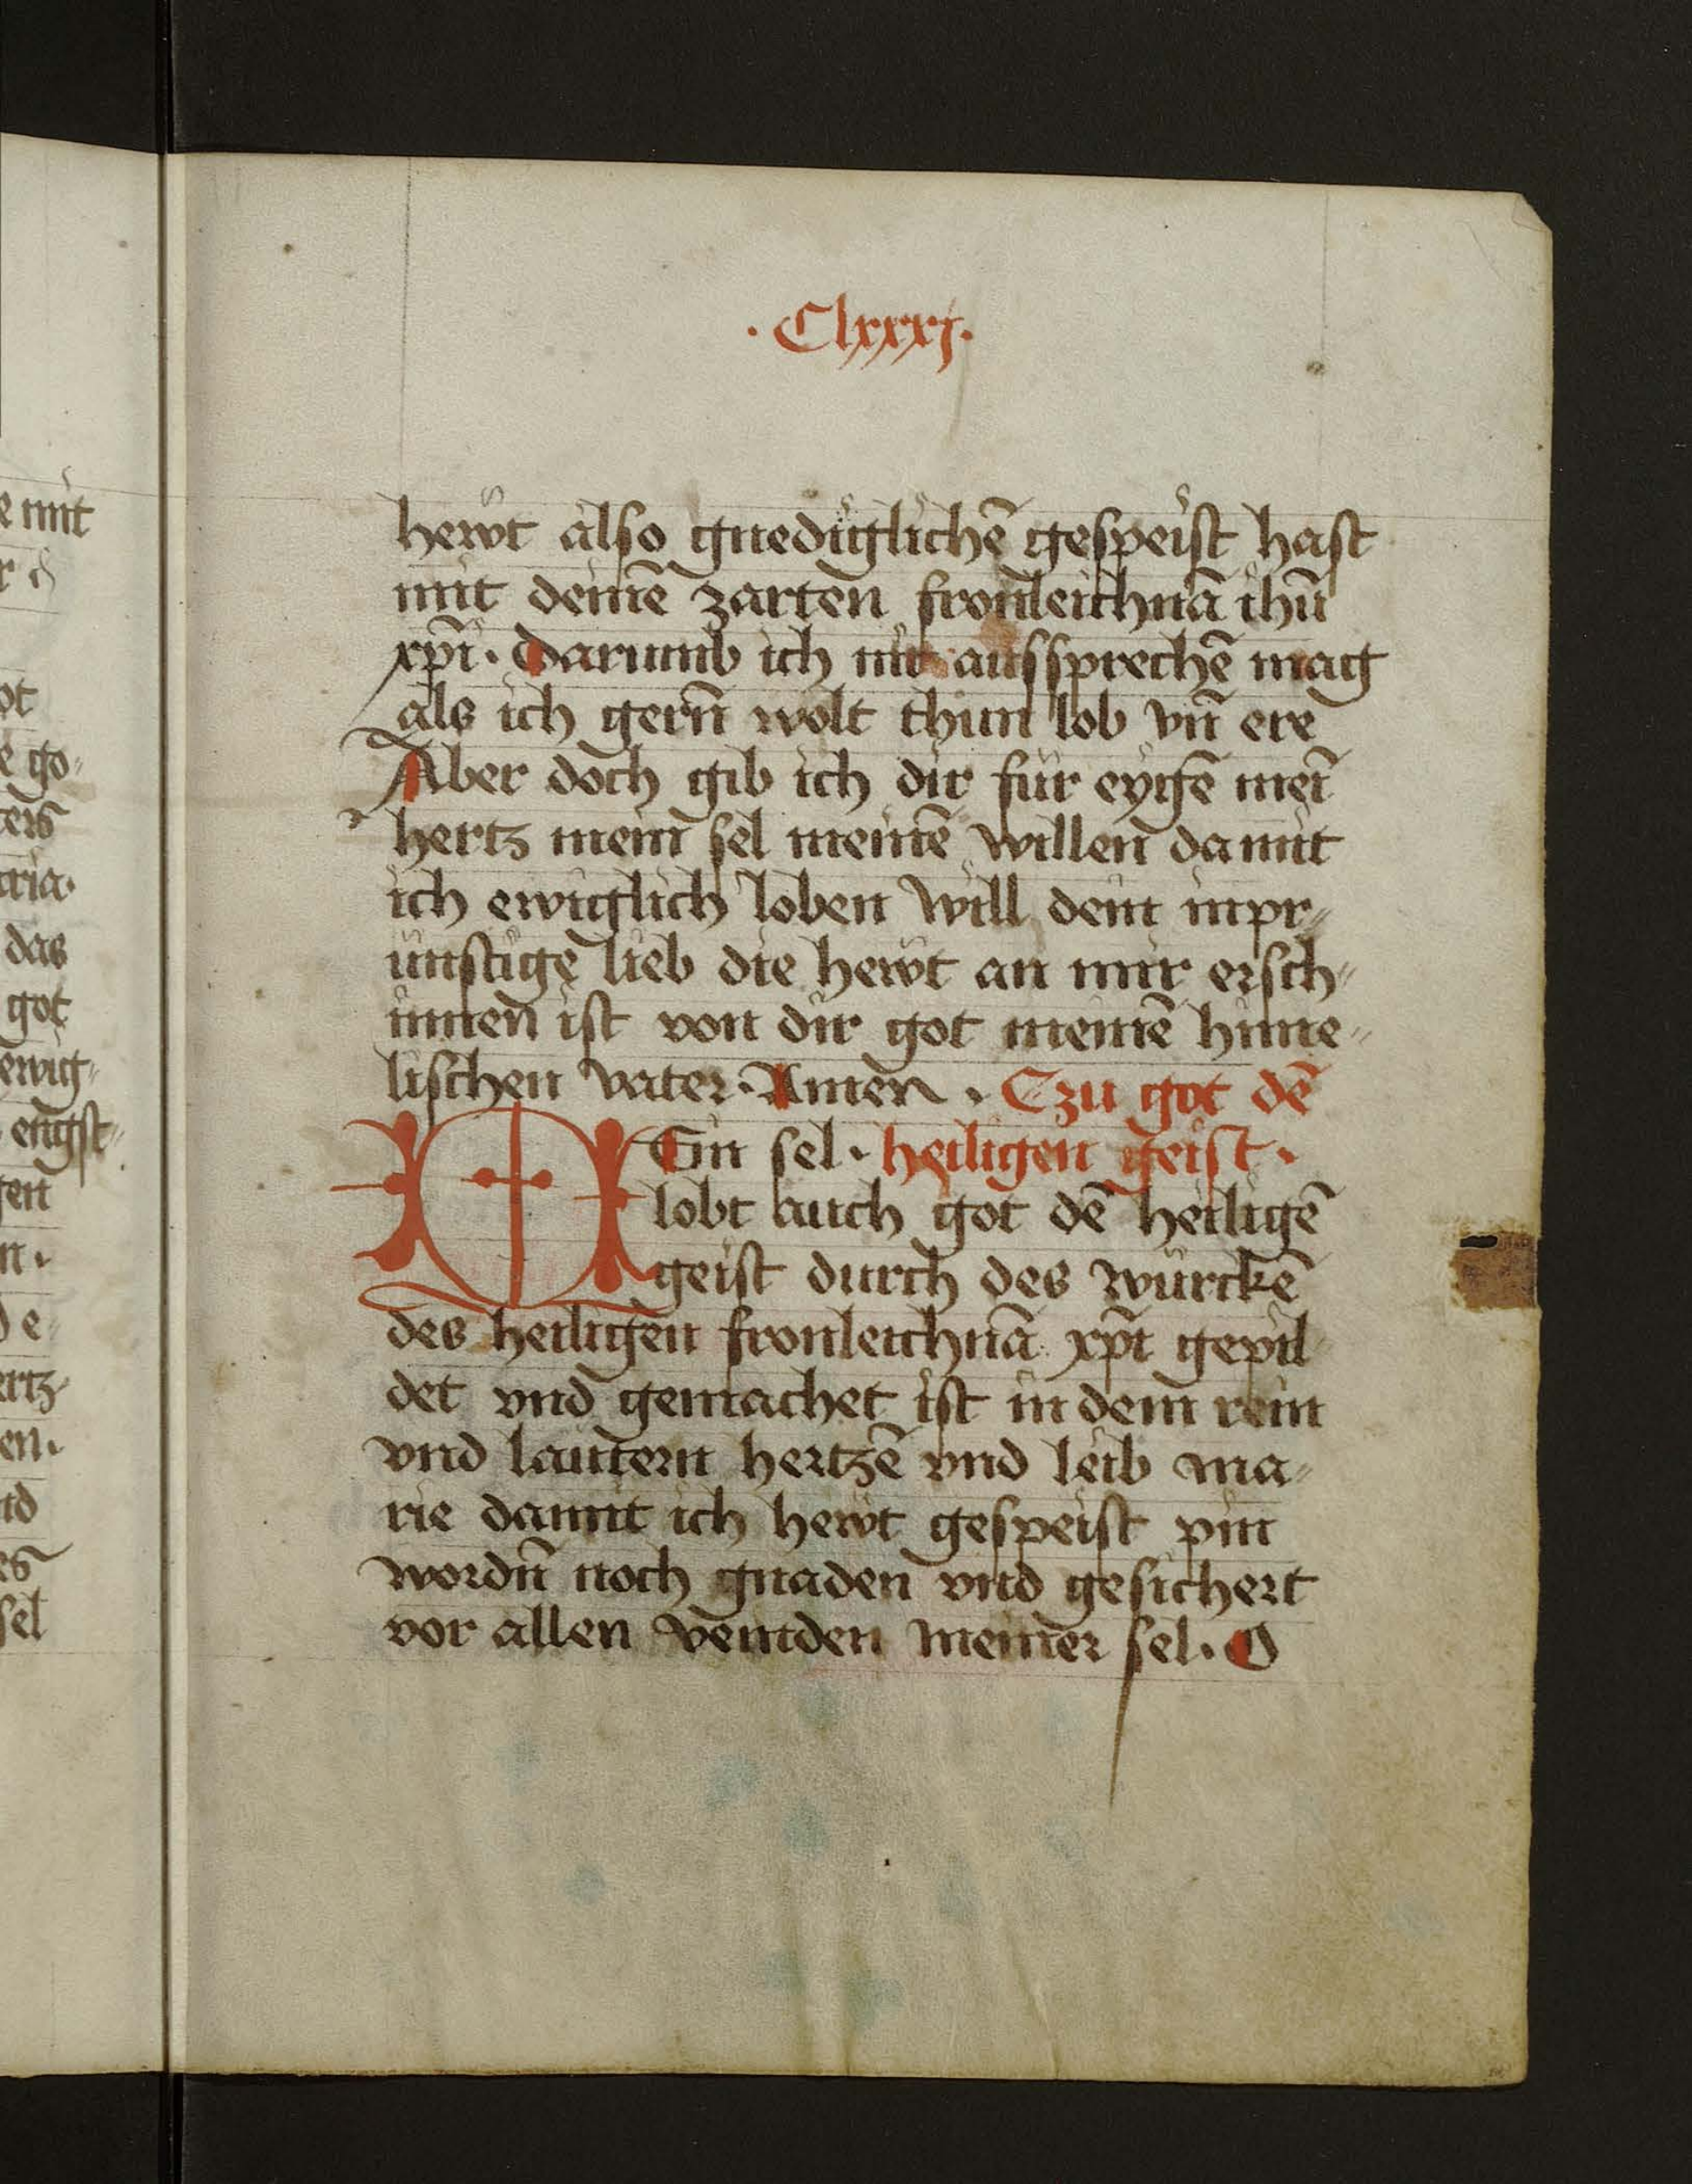 · Clxxxj ·
hewt also gnediglichē gespeist hast
mit deinē zarten fronleichnā ihū
xp̄i · Darumb ich nit aussprechē mag
als ich gern̄ wolt thun lob vn̄ ere
Aber doch gib ich dir für eygē mei̅
hertz mein sel meinē willen damit
ich ewiglich loben will dein inpr⸗
ünstige lieb die hewt an mir ersch⸗
innen ist von dir got meinē hime⸗
lischen vater · Amen · Czu got dē
MEin sel · heiligen geist ·
lobt auch got dē heiligē
geist durch des würckē
des heiligen fronleichnā xp̄i gepil
det vnd gemachet ist in dem rein
vnd lautern hertzē vnd leib ma⸗
rie damit ich hewt gespeist pin
wordn̄ noch gnaden vnd gesichert
vor allen veintden meiner sel · O
e mit
r d̕
ot
e go⸗
ters
aria ·
das
got
ewig⸗
engst⸗
gen
n ·
d e
ertz
en ·
nd
es
sel